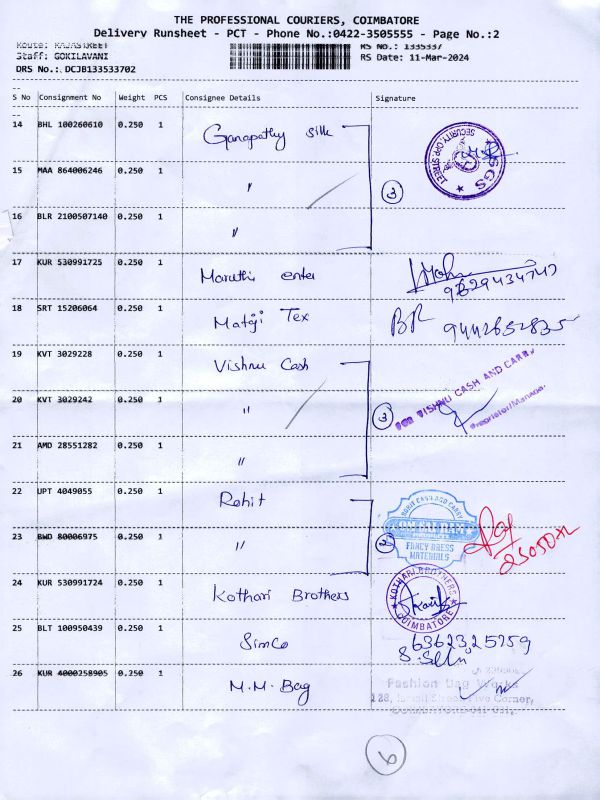 THE PROFESSIONAL COURIERS, COIMBATORE
Delivery Runsheet - PCT - Phone No.:0422-3505555 - Page No.:2
Route: RAJASTREET RS No.: 1335337
Staff: GOKILAVANI RS Date: 11-Mar-2024
DRS No.: DCJB133533702
S No Consignment No Weight PCS Consignee Details Signature
14 BHL 100260610 0.250 1 Ganapathy Silk
15 MAA 864006246 0.250 1 "
16 BLR 2100507140 0.250 1 "
3
SECURITY OPP STREET SGS
17 KUR 530991725 0.250 1 Maruthi enter
18 SRT 15206064 0.250 1 Mataji Tex BR 9442652835
19 KVT 3029228 0.250 1 Vishnu Cash
20 KVT 3029242 0.250 1 "
21 AMD 28551282 0.250 1 "
3
FOR VISHNU CASH AND CARRY
Proprietor/Manager
22 UPT 4049055 0.250 1 Rohit
23 BWD 80006975 0.250 1 "
ROHIT CASH AND CARRY
FANCY DRESS
MATERIALS
24 KUR 530991724 0.250 1 Kothari Brothers
KOTHARI BROTHERS COIMBATORE
25 BLT 100950439 0.250 1 Simco 6362325759
26 KUR 4000258905 0.250 1 M.M. Bag
Fashion Bag Works
128, Five Corner,
6